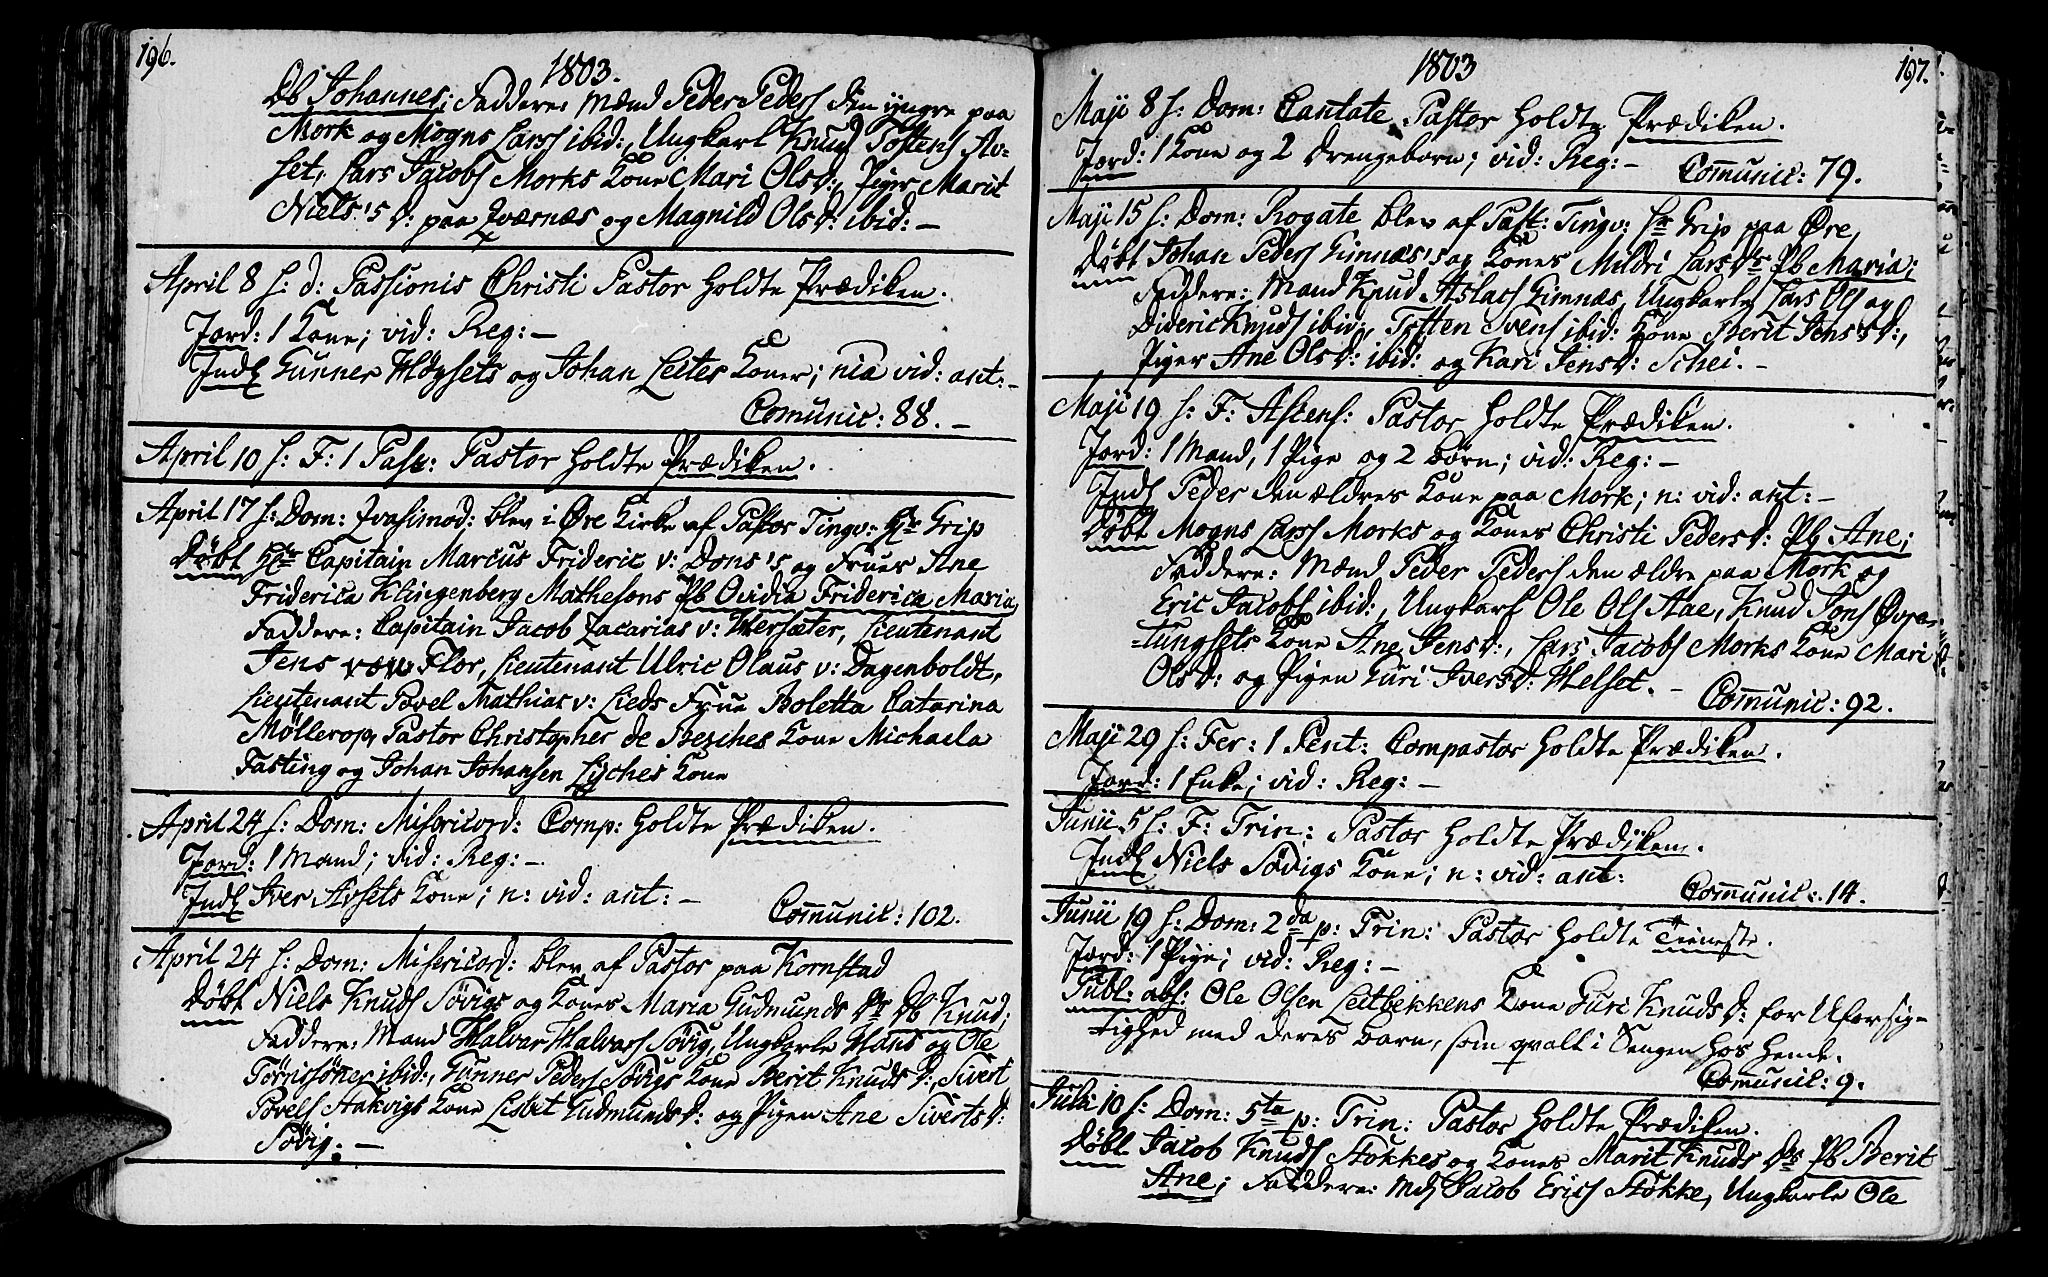 196.
1803.
Db Johannes; Faddere: Mænd Peder Peders den yngre paa
Mork og Mogns Larss ibid:, Ungkarl Knud Tostens Av-
set, Lars Jacobs Morks Kone Mari Olsd:, Piger Marit
Niels's d: paa Qværnæs og Magnild Olsd: ibid: -
April 8 s: d: Passionis Christi Pastor holdte Prædiken.
Jord: 1 Kone; vid: Reg: -
Indl Gunner Høysets og Johan Leites Koner; nia vid: ant: -
Comunic: 88. -
April 10 s: F: 1 Pasc: Pastor holdte Prædiken.
April 17 s: Dom: Qvasimod: blev i Øre Kirke af Pastor Tingv: Hr Grip
Døbt Hr Capitain Marcus Frideric v: Dons's og Frues Ane
Friderica Klingenberg Mathesons Pb Ovidia Friderica Maria
Faddere: Capitain Jacob Zacarias v: Hersæter, Lieutenant
Jens von Flor, Lieutenant Ulric Olaus v: Dagenboldt,
Lieutenant Povel Mathias v: Lieds Frue Boletta Catarina
Møllerop, Pastor Christopher de Besches Kone Michaela
Fasting og Johan Johansen Lyches Kone
April 24 s: Dom: Misericord: Comp: holdte Prædiken.
Jord: 1 Mand; vid: Reg: -
Indl Iver Avsets Kone; n: vid: ant: -
Communic: 102.
April 24 s: Dom: Misericord: blev af Pastor paa Kornstad
Døbt Niels Knuds Søvigs og Kones Maria Gudmunds Ds Db Knud;
Faddere: Mand Halvar Halvars Søvig, Ungkarle Hans og Ole
Tørrissöner ibid:, Gunner Peders Søvigs Kone Berit Knuds D:, Sivert
Povels Stakvigs Kone Lisbet Gudmundsd: og Pigen Ane Sivertsd:
Søvig. -
1803
197.
Maji 8 s: Dom: Cantate Pastor holdte Prædiken.
Jord: 1 Kone og 2 Drengebørn; vid: Reg: -
Communic: 79.
Maji 15 s: Dom: Rogate blev af Past: Tingv: Hr Grip paa Øre
Døbt Johan Peders Gimnæs's og Kones Mildri Larsds Pb Maria;
Faddere: Mand Knud Aslacs Gimnæs, Ungkarle Lars Ols og
Dideric Knuds ibid:, Tosten Svens ibid: Kone Berit Jens's d:,
Piger Ane Olsd: ibid: og Kari Jensd: Schei. -
Maji 19 s: F: Ascens: Pastor holdte Prædiken.
Jord: 1 Mand, 1 Pige og 2 Börn; vid: Reg: -
Indl Peder den ældres Kone paa Mork; n: vid: ant: -
Døbt Mogns Larss Morks og Kones Christi Pedersd: Pb Ane;
Faddere: Mænd Peder Peders den ældre paa Mork og
Eric Jacobs ibid:, Ungkarl Ole Ols Aae, Knud Jons Øvre-
tungsets Kone Ane Jensd:, Lars Jacobs Morks Kone Mari
Olsd: og Pigen Guri Iversd: Helset. -
Communic: 92.
Maji 29 s: Fer: 1 Pent: Compastor holdte Prædiken.
Jord: 1 Enke; vid: Reg: -
Junii 5 s: F: Trin: Pastor holdte Prædiken.
Indl Niels Søvigs Kone; n: vid: ant:
Communic: 14.
Junii 19 s: Dom: 2da p: Trin: Pastor holdte Tieneste.
Jord: 1 Pige; vid: Reg: -
Publ: abs: Ole Olsen Leitbekkens Kone Guri Knudsd: for Uforsig-
tighed med deres barn, som qvalt i Sengen hos hende.
Comunic: 9.
Julii 10 s: Dom: 5ta p: Trin: Pastor holdte Prædiken.
Døbt Jacob Knuds Stokkes og Kones Marit Knuds Ds Pb Berit
Ane; Faddere: Md Jacob Erics Stokke, Ungkarle Ole